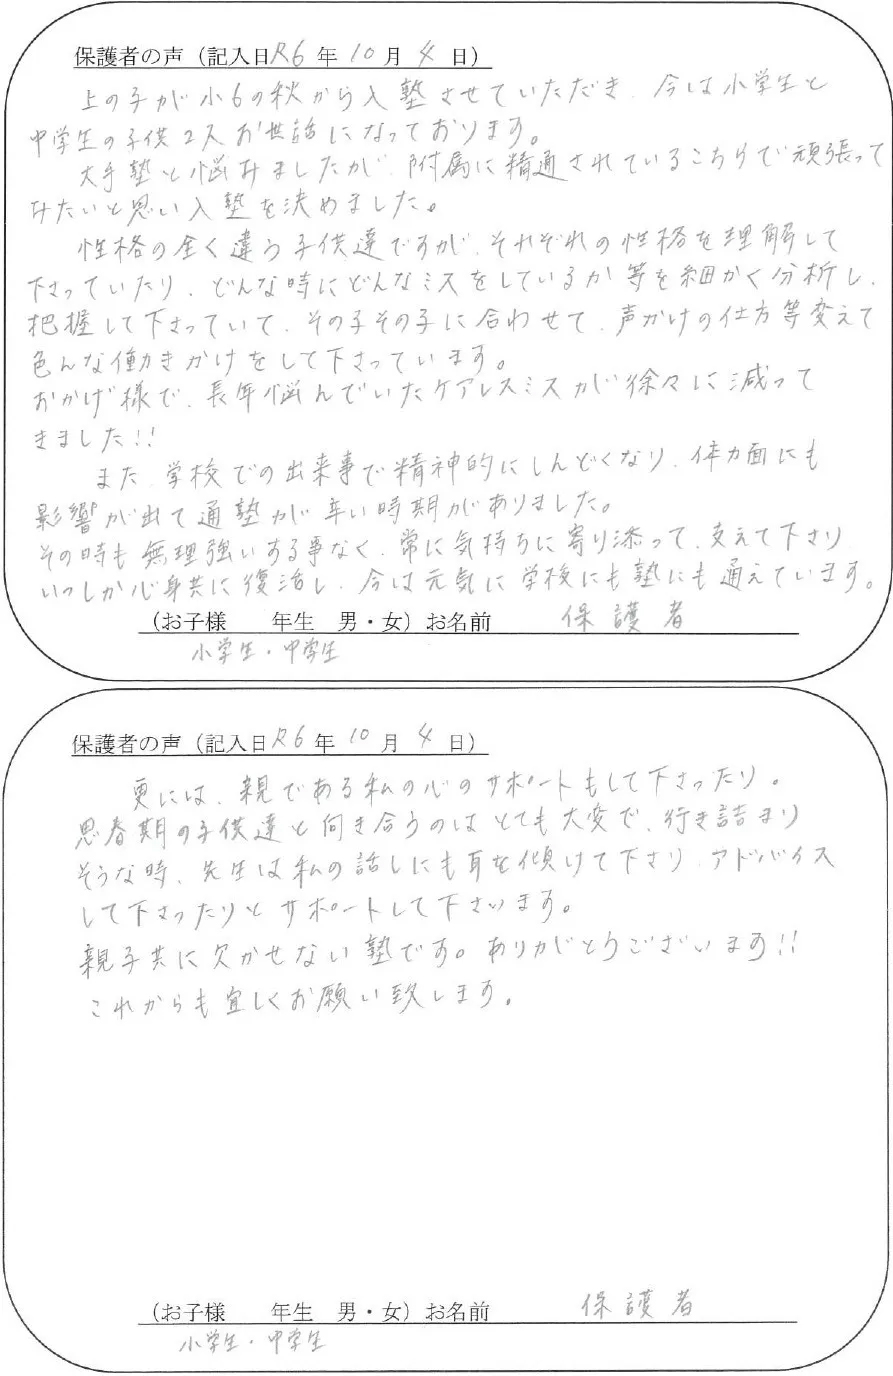 保護者の声（記入日R6年10月4日）
上の子が小6の秋から入塾させていただき、今は小学生と
中学生の子供2人お世話になっております。
大手塾と悩みましたが、附属に精通されているこちらで頑張って
みたいと思い入塾を決めました。
性格の全く違う子供達ですが、それぞれの性格を理解して
下さっていたり、どんな時にどんなミスをしているか等を細かく分析し、
把握して下さっていて、その子その子に合わせて、声かけの仕方等変えて
色んな働きかけをして下さっています。
おかげ様で、長年悩んでいたケアレスミスが徐々に減って
きました!!
また、学校での出来事で精神的にしんどくなり、体力面にも
影響が出て通塾が辛い時期がありました。
その時も無理強いする事なく、常に気持ちに寄り添って、支えて下さり
いつしか心身共に復活し、今は元気に学校にも塾にも通えています。
（お子様　年生　男・女）お名前　保護者
小学生・中学生
保護者の声（記入日R6年10月4日）
更には、親である私の心のサポートもして下さったり。
思春期の子供達と向き合うのはとても大変で、行き詰まり
そうな時、先生は私の話しにも耳を傾けて下さり、アドバイス
して下さったりとサポートして下さいます。
親子共に欠かせない塾です。ありがとうございます!!
これからも宜しくお願い致します。
（お子様　年生　男・女）お名前　保護者
小学生・中学生